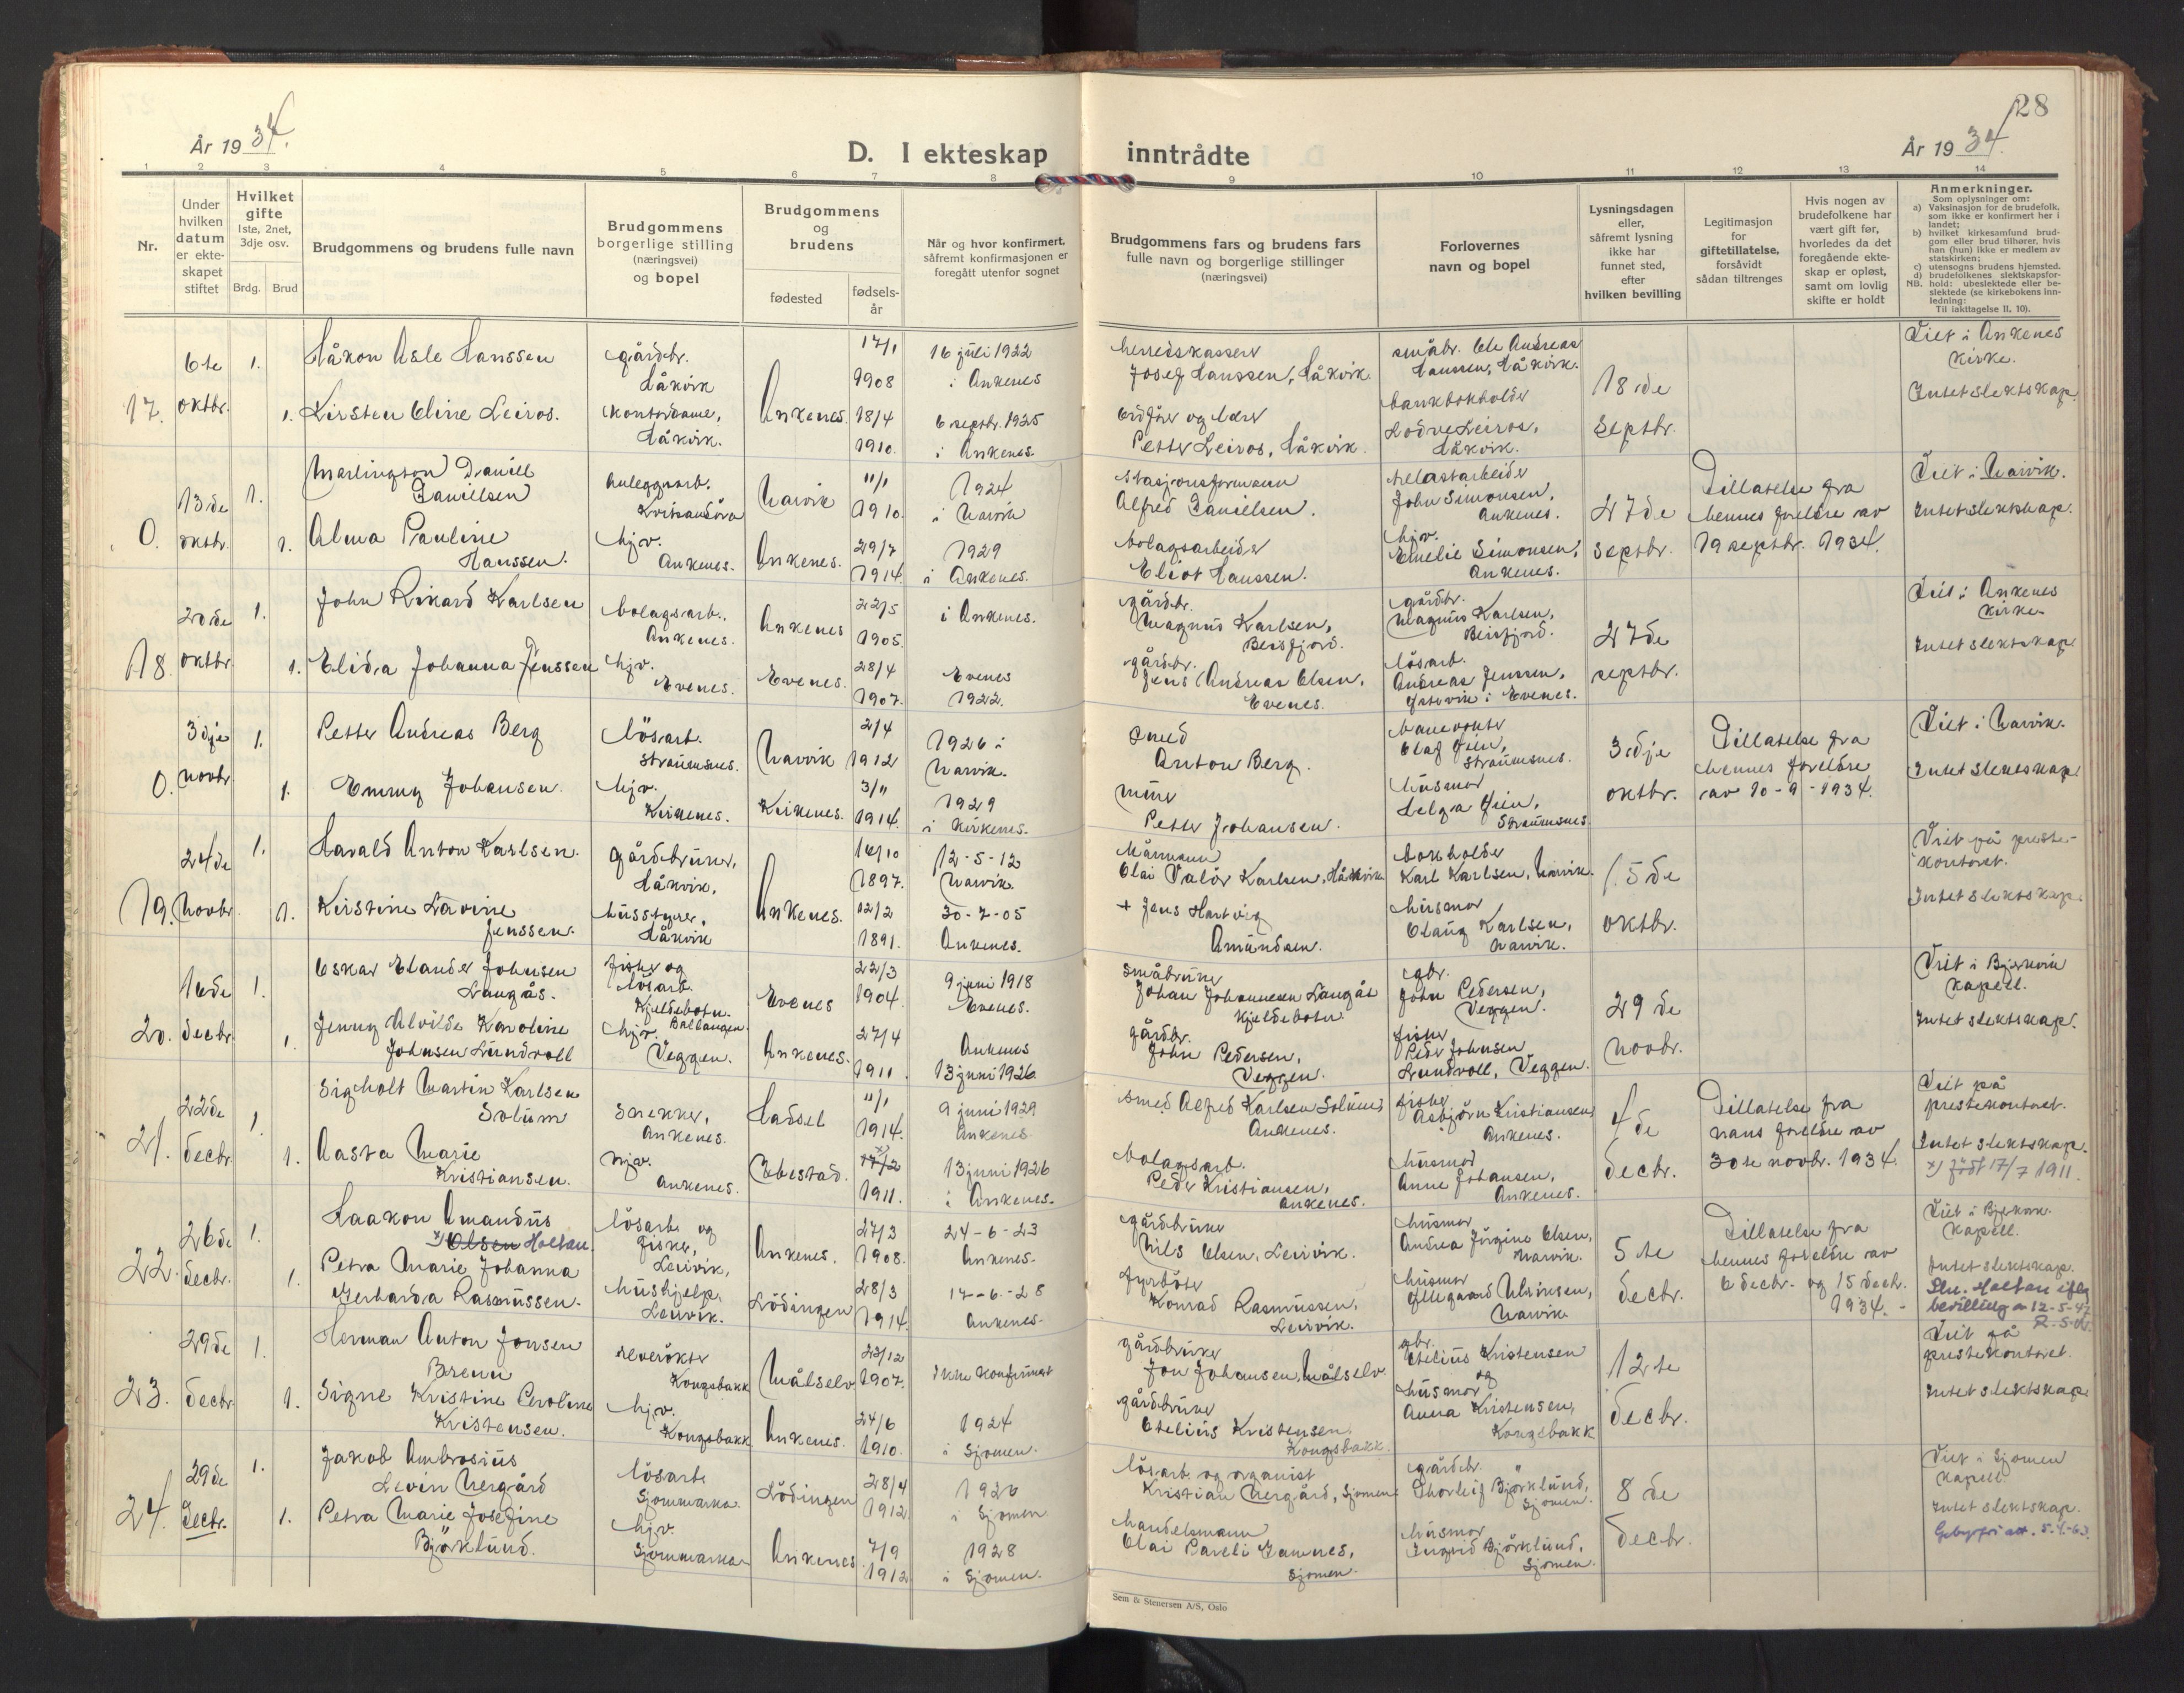 28
År 1934.
D. I ekteskap inntrådte
År 1934.
1 2 3 4 5 6 7 8 9 10 11 12 13 14
Nr.
Under hvilken datum er ekteskapet stiftet
Hvilket gifte 1ste, 2net, 3dje osv.
Brdg. Brud
Brudgommens og brudens fulle navn
Brudgommens borgerlige stilling (næringsvei) og bopel
Brudgommens og brudens
fødested
fødsels-år
Når og hvor konfirmert, såfremt konfirmasjonen er foregått utenfor sognet
Brudgommens fars og brudens fars fulle navn og borgerlige stillinger (næringsvei)
Forlovernes navn og bopel
Lysningsdagen eller, såfremt lysning ikke har funnet sted, efter hvilken bevilling
Legitimasjon for giftetillatelse, forsåvidt sådan tiltrenges
Hvis nogen av brudefolkene har vært gift før, hvorledes da det foregående ekteskap er opløst, samt om lovlig skifte er holdt
Anmerkninger.
Som oplysninger om:
a) Vaksinasjon for de brudefolk, som ikke er konfirmert her i landet;
b) hvilket kirkesamfund brudgom eller brud tilhører, hvis han (hun) ikke er medlem av statskirken;
c) utensogns brudens hjemsted.
d) brudefolkenes slektskapsforhold: ubeslektede eller beslektede (se kirkebokens innledning:
NB. Til iakttagelse II, 10).
17.
6te oktbr.
1.
Håkon Asle Hanssen
gårdbr.
Håkvik
Ankenes.
17/1
1908
16 juli 1922
i Ankenes
herredskasserer
Josef Hanssen, Håkvik.
småbr. Ole Andreas
Hanssen, Håkvik.
18de
septbr.
Viet i Ankenes
kirke.
Intet slektskap.
1.
Kirsten Oline Leiros.
kontordame,
Håkvik.
18/4
1910.
6 septbr. 1925
i Ankenes.
ordfører og lærer
Petter Leiros, Håkvik.
bankbokholder
Lodve Leiros,
Håkvik.
0.
13de
oktbr.
1.
Marlington Daniell
Danielsen
anleggsarb.
Narvik
11/1
1910.
1924
i Narvik
stasjonsformann
Alfred Danielsen.
John Simonsen,
Ankenes.
27de
septbr.
Tillatelse fra
hennes foreldre av
19 septbr. 1934.
Viet i Narvik.
Intet slektskap.
1.
Alma Pauline
Hanssen.
hjv.
Ankenes.
Ankenes.
29/7
1914.
1929
i Ankenes.
bolagsarbeider
Eliot Hanssen.
hjv.
Emelie Simonsen,
Ankenes.
18.
20de
oktbr.
1.
John Rikard Karlsen
bolagsarb.,
Ankenes.
Ankenes
22/5
1905.
i Ankenes.
gårdbr.
Magnus Karlsen,
Beisfjord.
gårdbr.
Magnus Karlsen,
Beisfjord.
27de
septbr.
Viet i Ankenes
kirke.
Intet slektskap
1.
Elida Johanna Jenssen
hjv.
Evenes.
Evenes.
28/4
1907.
Evenes
1922.
gårdbr.
Jens Andreas Olsen,
Evenes.
lösarb.
Andreas Jenssen,
i Evenes.
0.
3dje
novbr.
1.
Petter Andreas Berg
lösarb.
Straumsnes.
Narvik
2/4
1912
1926 i
Narvik.
smed
Anton Berg.
banevokter
Olaf
Straumsnes.
3dje
oktbr.
Tillatelse fra
hennes foreldre
av 10-9-1934.
Viet i Narvik.
Intet slektskap.
1.
Emmy Johansen.
hjv.
Kirkenes.
Kirkenes.
3/11
1914.
1929
i Kirkenes.
murer
Petter Johansen.
husmor
Helga
Straumsnes.
19.
24de
Novbr.
1.
Harald Anton Karlsen.
gårdbruker,
Håkvik,
Ankenes.
16/10
1897.
12-5-12
Narvik
Olai Valör Karlsen, Håkvik
bokholder
Karl Karlsen, Narvik.
15de
oktbr.
Viet på preste-
kontoret.
Intet slektskap.
1.
Kirstine Lovine
Jenssen.
husstyrer,
Håkvik
12/2
1891.
30-7-05
Ankenes.
+ Jens Hartvig
Amundsen.
husmor
Olaug Karlsen,
Narvik.
20.
16de
decbr.
1.
Oskar Elander Johnsen
Langås.
fisker og
lösarb.
Kjeldebotn.
Ballangen
Evenes
22/3
1904.
9 juni 1918
Evenes.
småbruker
Johan Johannesen Langås
Kjeldebotn.
gbr.
John Pedersen,
Veggen.
29de
novbr.
Viet i Bjerkvik
kapell.
Intet slektskap.
1.
Jenny Alvilde Karoline
Johnsen Lundvoll
hjv.
Veggen.
Ankenes.
27/4
1911.
Ankenes
13 juni 1926.
gårdbr.
John Pedersen,
Veggen.
fisker
Peder Johnsen
Lundvoll, Veggen.
21.
22de
decbr.
1.
Sigholt Martin Karlsen
Solum
snekker,
Ankenes.
Hadsel
11/1
1914.
9 juni 1929
Ankenes.
smed Alfred Karlsen Solum,
Ankenes.
fisker
Asbjørn Kristiansen,
Ankenes.
4de
decbr.
Tillatelse fra
hans foreldre av
30te novbr. 1934.
Viet på
prestekontoret.
Intet slektskap.
x) født 17/7 1911.
1.
Aasta Marie
Kristiansen.
hjv.
Ankenes.
Ibestad.
17/2
1911.
13 juni 1926
i Ankenes.
bolagsarb.
Peder Kristiansen,
Ankenes.
husmor
Anne Johansen,
Ankenes.
22.
26de
decbr.
1.
Haakon Amandus
x) Olsen Holtan.
lösarb. og
fisker,
Leirvik,
Ankenes.
27/3
1908.
24-6-23
Ankenes.
gårdbruker
Nils Olsen, Leirvik.
husmor
Andrea Jörgine Olsen,
Narvik.
5te
decbr.
Tillatelse fra
hennes foreldre av
6 decbr. og 15 decbr.
1934.
Viet i Bjerkvik
kapell.
Intet slektskap.
Holtan iflg
bevilling av 12-5-47
1.
Petra Marie Johanna
Gerharda Rasmussen.
hushjelp,
Leirvik.
Lödingen
28/3
1914.
17-6-28
Ankenes.
fyrböter
Konrad Rasmussen,
Leirvik.
husmor
Narvik.
23.
29de
decbr.
1.
Herman Anton Jonsen
Brenn
Kongsbakk
Målselv
23/12
1907.
ikke konfirmert
gårdbruker
Jon Johansen, Målselv.
gbr.
Otelius Kristensen
og
12te
decbr.
Viet på
prestekontoret.
Intet slektskap
1.
Signe Kristine Peroline
Kristensen.
hjv.
Kongsbakk
Ankenes.
24/6
1910.
1924
i Sjomen.
gårdbruker
Otelius Kristensen,
Kongsbakk.
husmor
Anna Kristensen,
Kongsbakk
24.
29de
decbr.
1.
Jakob Ambrosius
Levin Nergård
lösarb.
Sjommarka.
Lödingen
28/4
1912.
1926
i Sjomen
lösarb. og organist
Kristian Nergård, Sjomen
gårdbr.
Thorleif Björklund,
Sjomen.
8de
decbr.
Viet i Sjomen
kapell
Intet slektskap.
Gebyrfri att. 5.4.-63.
1.
Petra Marie Josefine
Björklund.
hjv.
Sjommarka
Ankenes
7/9
1912
1928
i Sjomen.
handelsmann
Olai Pareli Hamnes,
Sjomen.
husmor
Ingrid Björklund,
Sjomen.
Sem & Stenersen A/S, Oslo